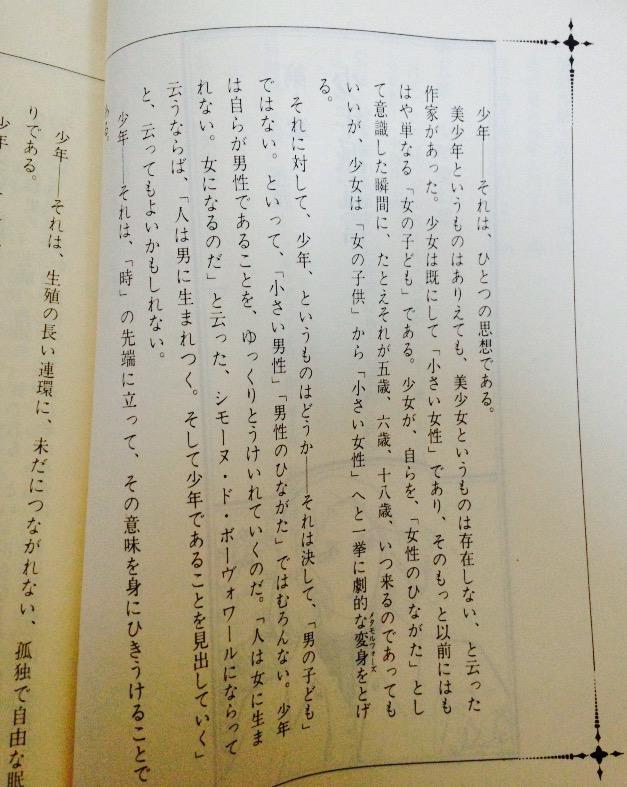 少年――それは、ひとつの思想である。
美少年というものはありえても、美少女というものは存在しない、と云った
作家があった。少女は既にして「小さい女性」であり、そのもっと以前にはも
はや単なる「女の子ども」である。少女が、自らを、「女性のひながた」とし
て意識した瞬間に、たとえそれが五歳、六歳、十八歳、いつ来るのであっても
いいが、少女は「女の子供」から「小さい女性」へと一挙に劇的な変身をとげ
メタモルフォーズ
る。
それに対して、少年、というものはどうか――それは決して、「男の子ども」
ではない。といって、「小さい男性」「男性のひながた」ではむろんない。少年
は自らが男性であることを、ゆっくりとうけいれていくのだ。「人は女に生ま
れない。女になるのだ」と云った、シモーヌ・ド・ボーヴォワールにならって
云うならば、「人は男に生まれつく。そして少年であることを見出していく」
と、云ってもよいかもしれない。
少年――それは、「時」の先端に立って、その意味を身にひきうけることで
ある。
少年――それは、生殖の長い連環に、未だにつながれない、孤独で自由な眠
りである。
少年